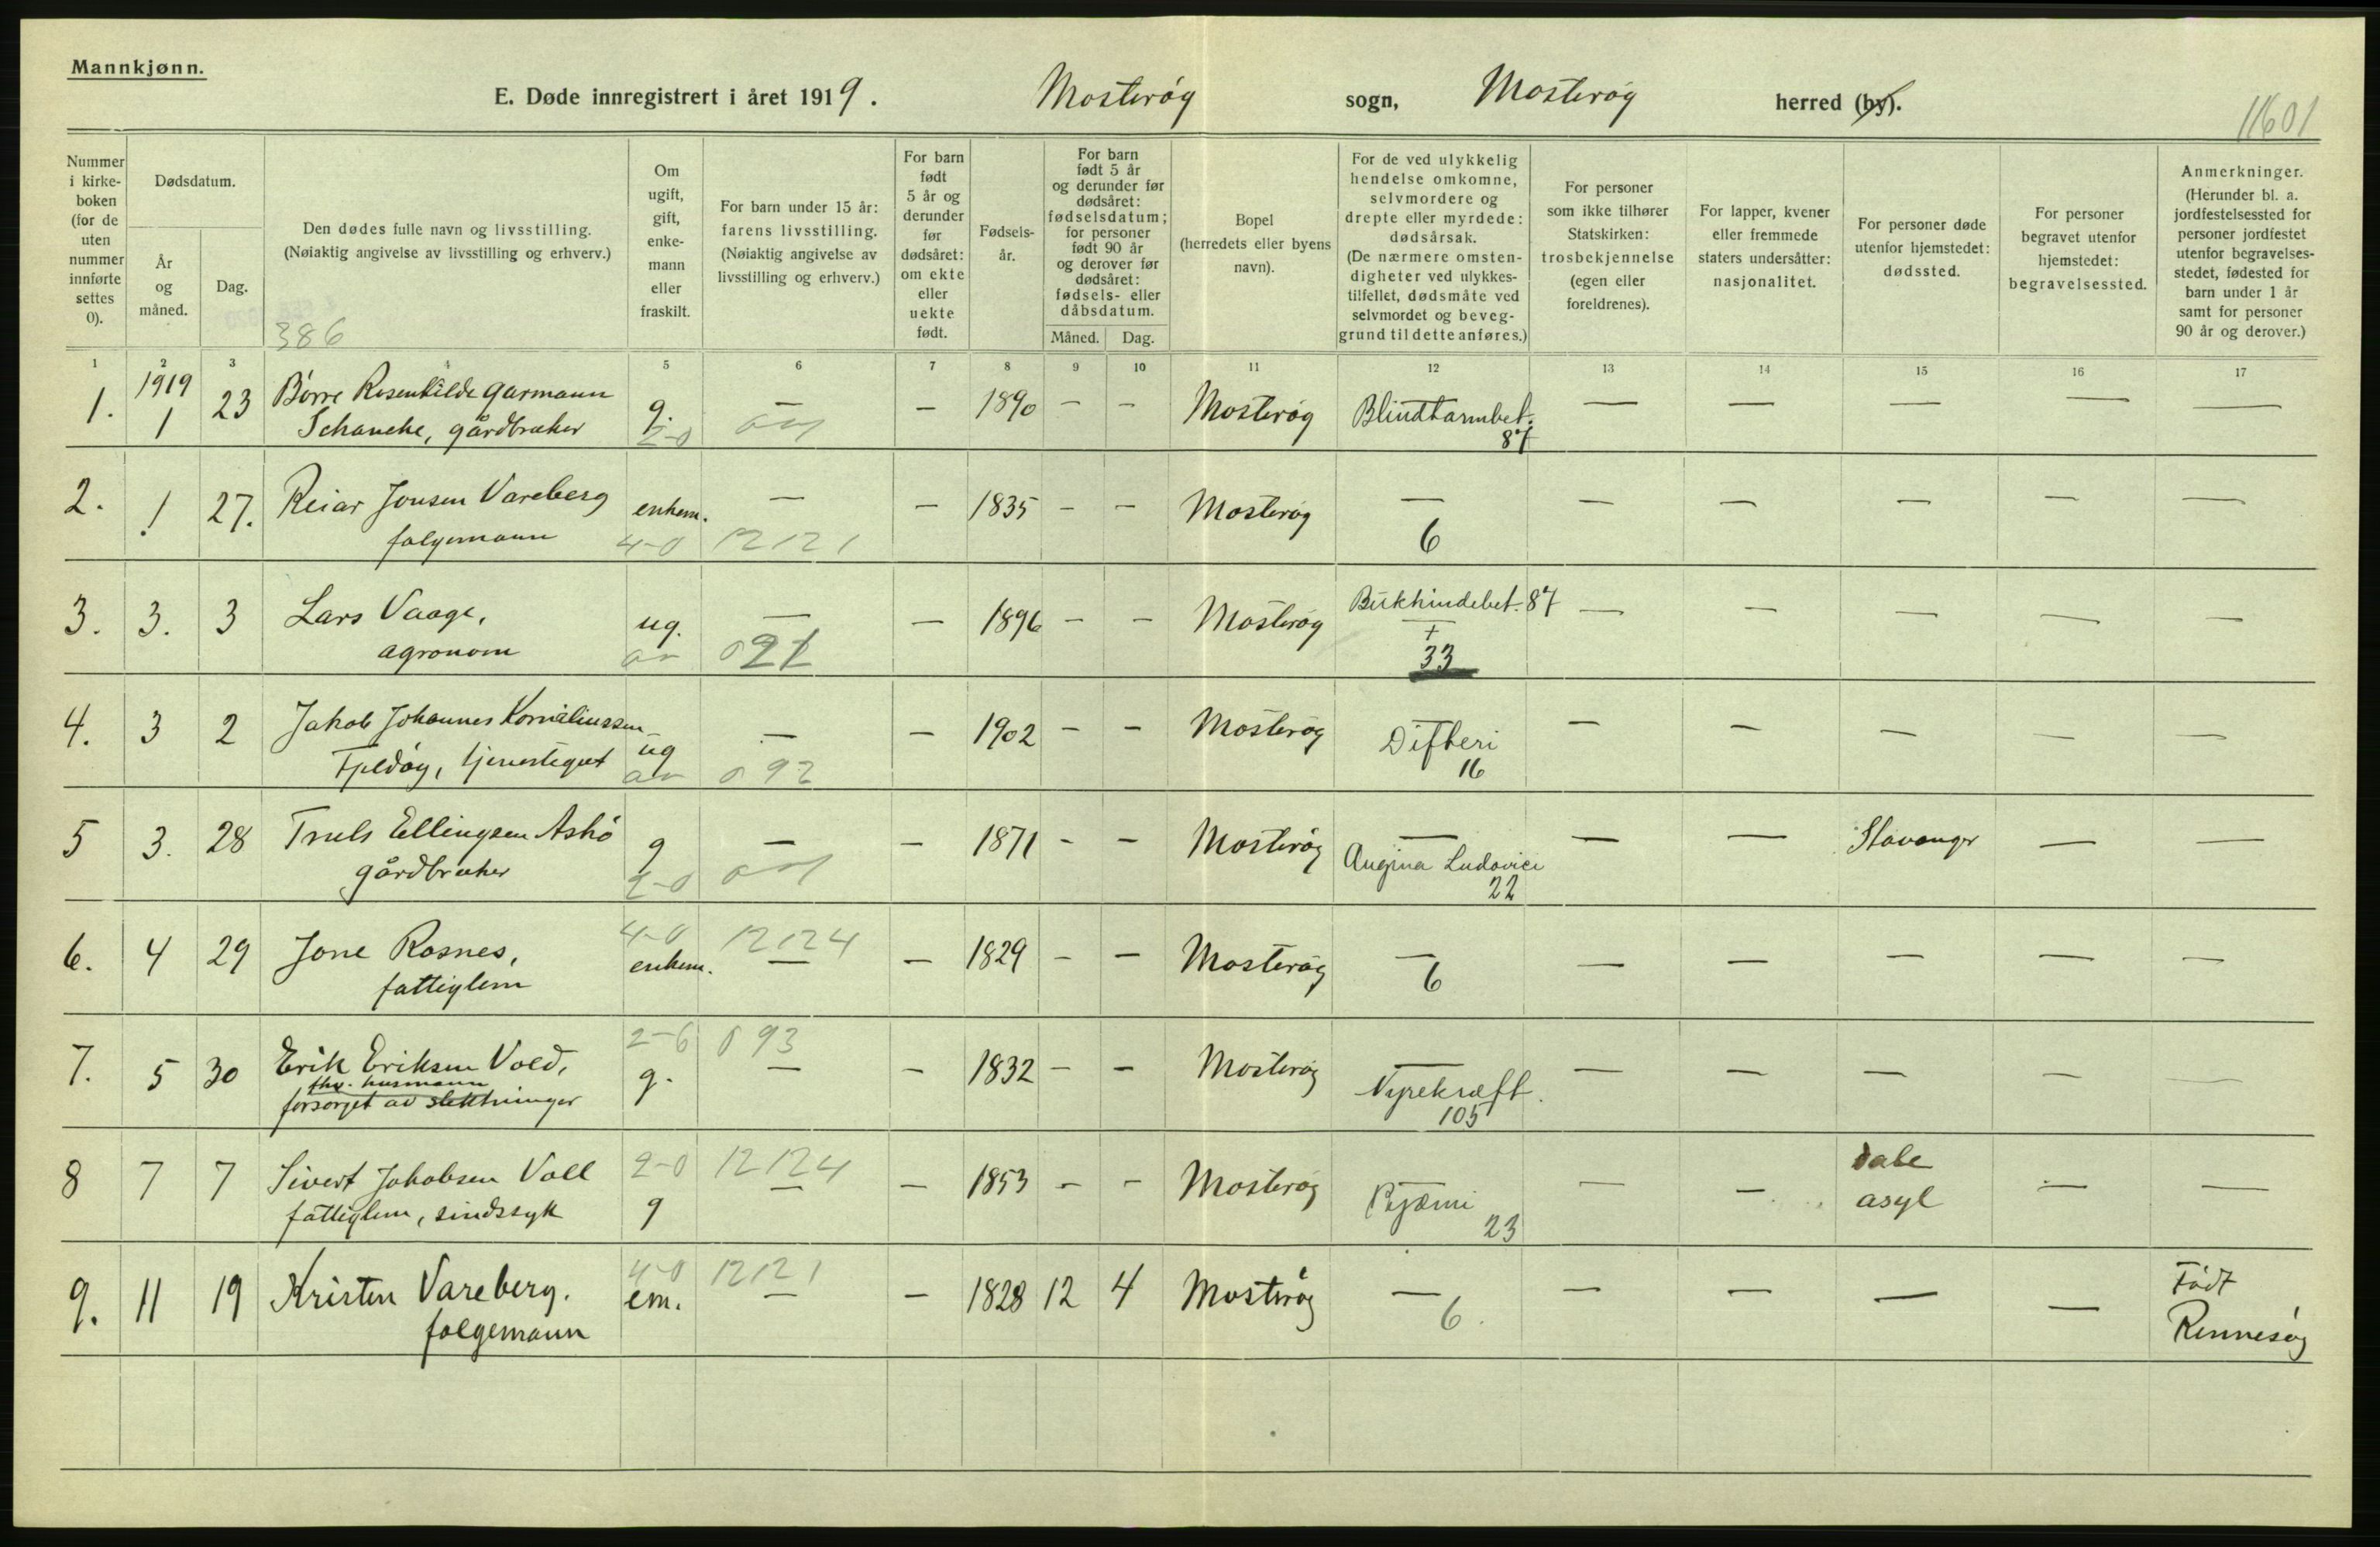 Mannkjønn.
E. Døde innregistrert i året 1919. Mosterøy sogn, Mosterøy herred (by).
11601
Nummer i kirke-boken (for de uten nummer innførte settes 0).
Dødsdatum.
År og måned.
Dag.
Den dødes fulle navn og livsstilling.
(Nøiaktig angivelse av livsstilling og erhverv.)
386
Om ugift, gift, enke-mann eller fraskilt.
For barn under 15 år: farens livsstilling.
(Nøiaktig angivelse av livsstilling og erhverv.)
For barn født 5 år og derunder før dødsåret: om ekte eller uekte født.
Fødsels-år.
For barn født 5 år og derunder før dødsåret: fødselsdatum; for personer født 90 år og derover før dødsåret: fødsels- eller dåbsdatum.
Måned. Dag.
Bopel (herredets eller byens navn).
For de ved ulykkelig hendelse omkomne, selvmordere og drepte eller myrdede: dødsårsak.
(De nærmere omsten-digheter ved ulykkes-tilfellet, dødsmåte ved selvmordet og beveg-grund til dette anføres.)
For personer som ikke tilhører Statskirken: trosbekjennelse (egen eller foreldrenes).
For lapper, kvener eller fremmede staters undersåtter: nasjonalitet.
For personer døde utenfor hjemstedet: dødssted.
For personer begravet utenfor hjemstedet: begravelsessted.
Anmerkninger.
(Herunder bl. a. jordfestelsessted for personer jordfestet utenfor begravelses-stedet, fødested for barn under 1 år samt for personer 90 år og derover.)
1 2 3 4 5 6 7 8 9 10 11 12 13 14 15 16 17
1. 1919 1 23 Børre Rosenkilde Garmann g. — — 1890 - - Mosterøy Blindtarmbet. — — — — —
Schanche, gårdbruker 2-0 87
2. 1 27. Reiar Jonsen Vareberg enkem. — — 1835 - - Mosterøy — — — — — —
folgemann 4-0 12121 6
3. 3. 3 Lars Vaage, ug. — — 1896 - - Mosterøy Bukhindebet. 87 — — — — —
agronom 33
4. 3 2 Jakob Johannes Korneliussen ug — — 1902 - - Mosterøy Difteri — — — — —
Fjeldøy, tjenestegut 092 16
5 3. 28 Truls Ellingsen Askø g — — 1871 - - Mosterøy — — — Stavanger — —
gårdbruker 2-0 Angina Ludovici 22
6. 4 29 Jone Rosnes, 4-0 12124 enkem. — — 1829 - - Mosterøy — — — — — —
fattiglem 6
7. 5 30 Erik Eriksen Vold, 2-6 093 g. — — 1832 - - Mosterøy — — — — — —
fhv. husmann
forsørget av slektninger Nyrekræft. 105
8 7 7 Sivert Jakobsen Voll 2-0 12124 g — — 1853 - - Mosterøy — — — Dale asyl — —
fattiglem, sindssyk Pyæmi 23
9. 11 19 Kristen Vareberg. 4-0 1212 1 em. — — 1828 12 4 Mosterøy — — — — — Født Rennesøy
folgemann 6.